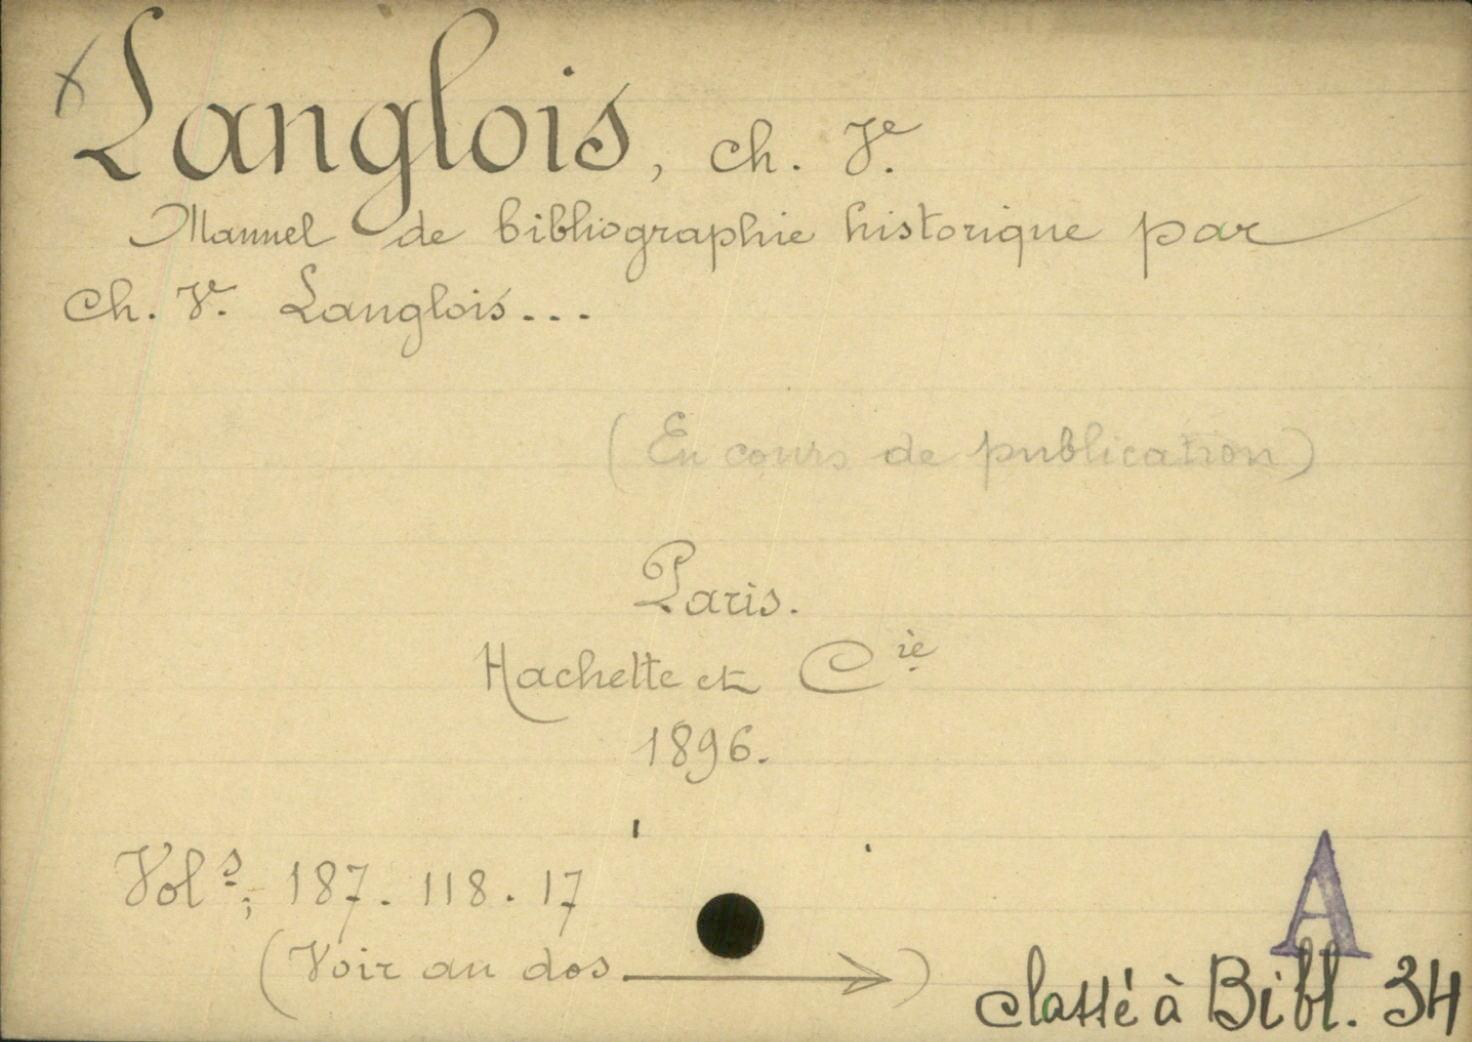 Langlois, Ch. Ve.
Manuel de bibliographie historique par
Ch. Ve. Langlois...
(En cours de publication)
Paris.
Hachette et Cie
1896.
Vols; 187. 118. 17
(Voir au dos →)
A
classé à Bibl. 34